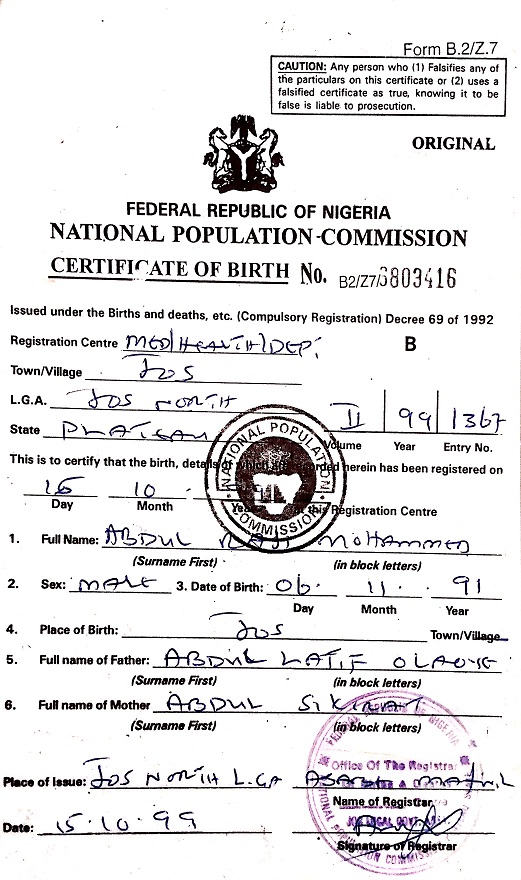 Form B.2/Z.7
CAUTION: Any person who (1) Falsifies any of
the particulars on this certificate or (2) uses a
falsified certificate as true, knowing it to be
false is liable to prosecution.
ORIGINAL
FEDERAL REPUBLIC OF NIGERIA
NATIONAL POPULATION COMMISSION
CERTIFICATE OF BIRTH No. B2/Z7/6803416
Issued under the Births and deaths, etc. (Compulsory Registration) Decree 69 of 1992
Registration Centre MED/HEALTH/DEPT B
Town/Village JOS
L.G.A. JOS NORTH
State PLATEAU II 99 1367
Volume Year Entry No.
This is to certify that the birth, details of which are recorded herein has been registered on
NATIONAL POPULATION COMMISSION
15 10
Day Month Year at this Registration Centre
1. Full Name: ABDUL MOHAMMED
(Surname First) (in block letters)
2. Sex: MALE 3. Date of Birth: 06. 11. 91
Day Month Year
4. Place of Birth: JOS Town/Village
5. Full name of Father: ABDUL LATIF
(Surname First) (in block letters)
6. Full name of Mother ABDUL SIKIRAT
(Surname First) (in block letters)
Office Of The Registrar
Place of Issue: JOS NORTH L.G.A
Name of Registrar
Date: 15.10.99
Signature of Registrar